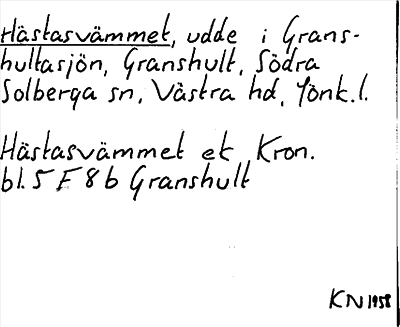 Hästasvämmet, udde i Grans-
hultasjön, Granshult, Södra
Solberga sn, Västra hd, Jönk.l.
Hästasvämmet ek Kron.
bl. 5 F 8 b Granshult
KN 1958